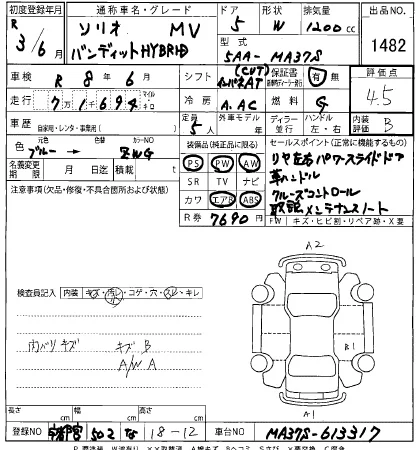 初度登録年月
R
3/6月
通称車名・グレード
ソリオ MV
バンディットHYBRID
ドア
5
形状
W
排気量
1200cc
型式
5AA-MA37S
出品NO.
1482
車検 R 8年 6月
シフト (CVT) AT
保証書 有 無
評価点
4.5
走行 7万1千694 マイル キロ
冷房 A.AC
燃料 G
車歴 自家用・レンタ・事業用( )
定員 5人
外車モデル 年
ディーラー 並行
ハンドル 左・右
内装 B
色 元色 ブルー → 色替 カラーNO ZWG
名義変更期限 月 日迄 積載 t
装備品(純正品に限る)
PS PW AW
SR TV ナビ
カワ エアB ABS
R券 7690円
セールスポイント(正常に機能するもの)
リヤ左右パワースライドドア
革ハンドル
クルーズコントロール
取説 メンテナンスノート
注意事項(欠品・修復・不具合箇所および状態)
FW キズ・ヒビ割・リペア跡・X要
検査員記入 内装 キズ・汚レ・コゲ・穴・スレ・キレ
内バリ キズ キズ B
A/W A
A2
B1
A1
長さ cm 幅 cm 高さ cm
登録NO 宇都宮 502 な 18-12
車台NO MA37S-613317